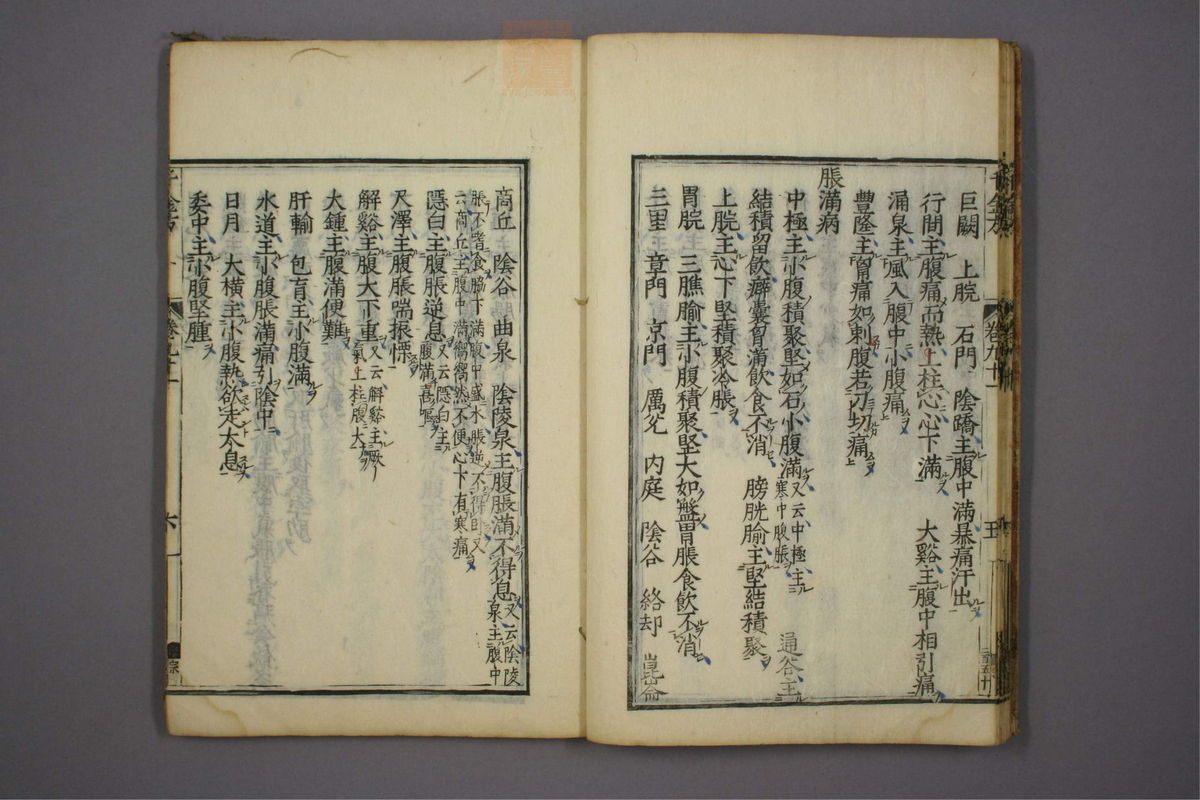 巨闕　上脘　石門　陰蹻主腹中滿暴痛汗出
行間主腹痛而熱上柱心心下滿　大谿主腹中相引痛
漏泉主風入腹中小腹痛
豐隆主胷痛如刺腹若刀切痛
脹滿病
中極主小腹積聚堅如石小腹滿又云中極主寒中腹脹　通谷主
結積留飲癖囊胷滿飲食不消　膀胱腧主堅結積聚
上脘主心下堅積聚冷脹
胃脘　三膲腧主小腹積聚堅大如盤胃脹食飲不消
三里　章門　京門　厲兌　內庭　陰谷　絡却　崑崙
卷九十一
五
商丘　陰谷　曲泉　陰陵泉主腹脹滿不得息又云陰陵泉主腹中
脹不嗜食脇下滿腹中盛水脹逆不得臥又
云商丘主腹中滿嚮嚮然不便心下有寒痛
隱白主腹脹逆息又云隱白主腹滿喜嘔
尺澤主腹脹喘振慄
解谿主腹大下重又云解谿主厥氣上柱腹大
大鍾主腹滿便難
肝輸　包肓主小腹滿
水道主小腹脹滿痛引陰中
日月　大橫主小腹熱欲走太息
委中主小腹堅腫
卷九十一
六